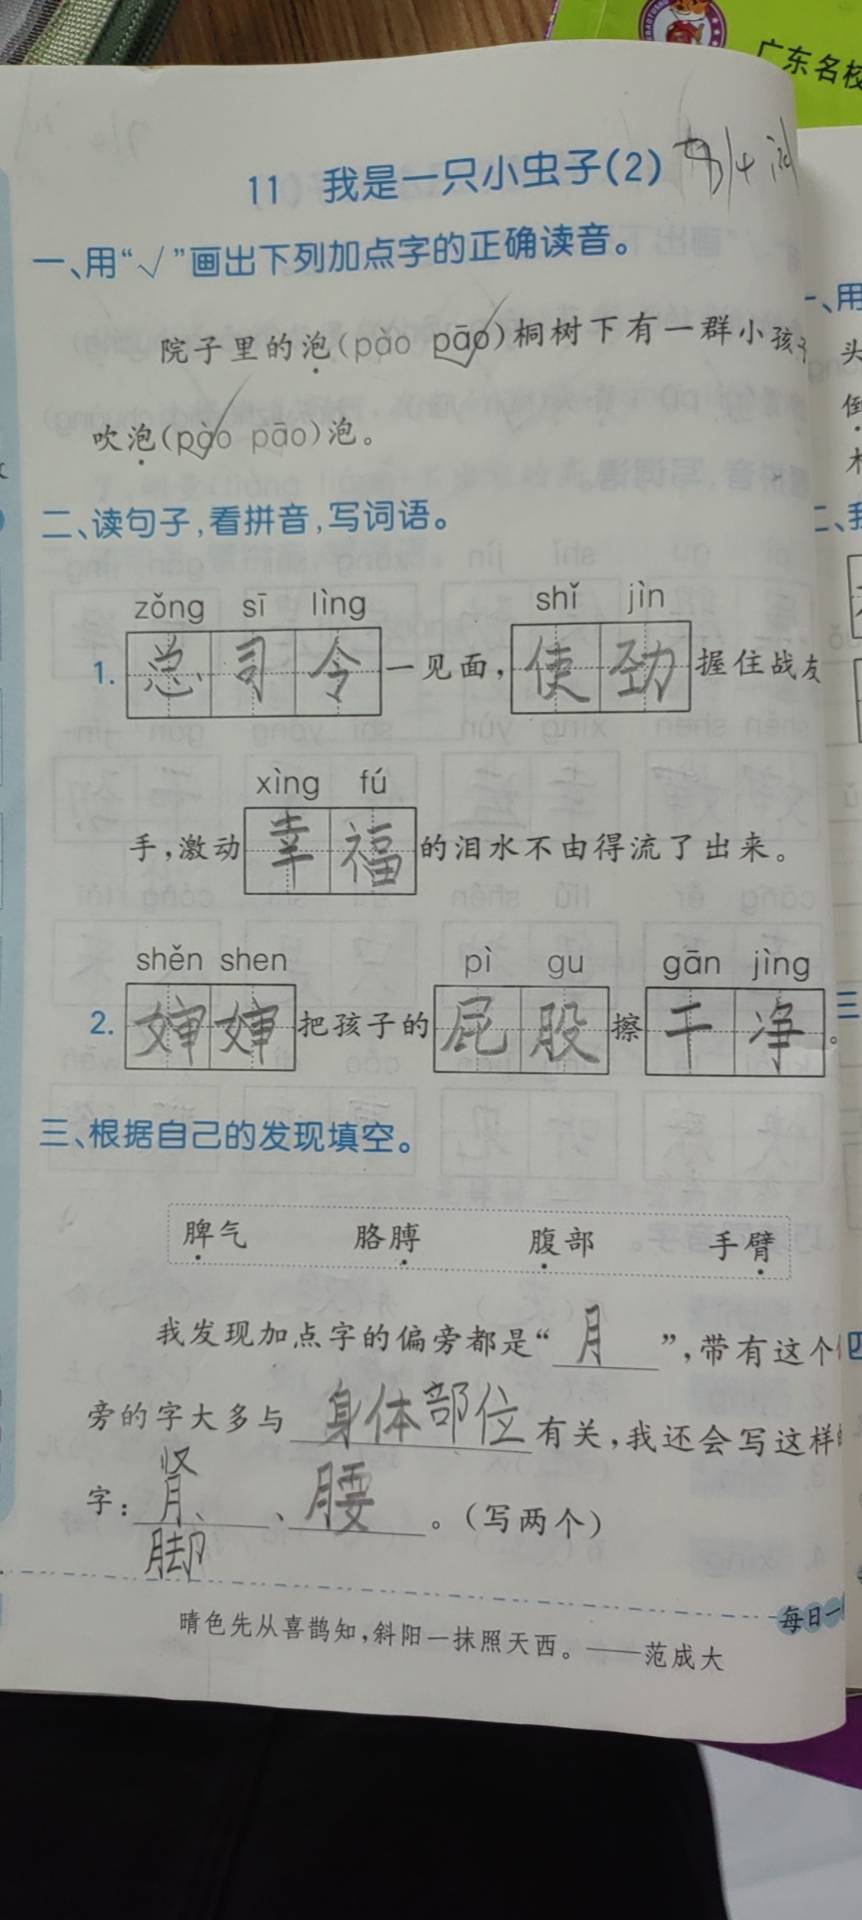 广东名校
11 我是一只小虫子(2)
一、用“√”画出下列加点字的正确读音。
院子里的泡(pào pāo)桐树下有一群小孩子
吹泡(pào pāo)泡。
二、读句子,看拼音,写词语。
zǒng sī lìng shǐ jìn
1. 总司令一见面,使劲握住战友
xìng fú
手,激动幸福的泪水不由得流了出来。
shěn shen pì gu gān jìng
2. 婶婶把孩子的屁股擦干净。
三、根据自己的发现填空。
脾气 胳膊 腹部 手臂
我发现加点字的偏旁都是“月”,带有这个
旁的字大多与身体部位有关,我还会写这样
字:肾、腰。(写两个)
脚
晴色先从喜鹊知,斜阳一抹照天西。——范成大
每日一
一、用
头
倒
二、我
三
四